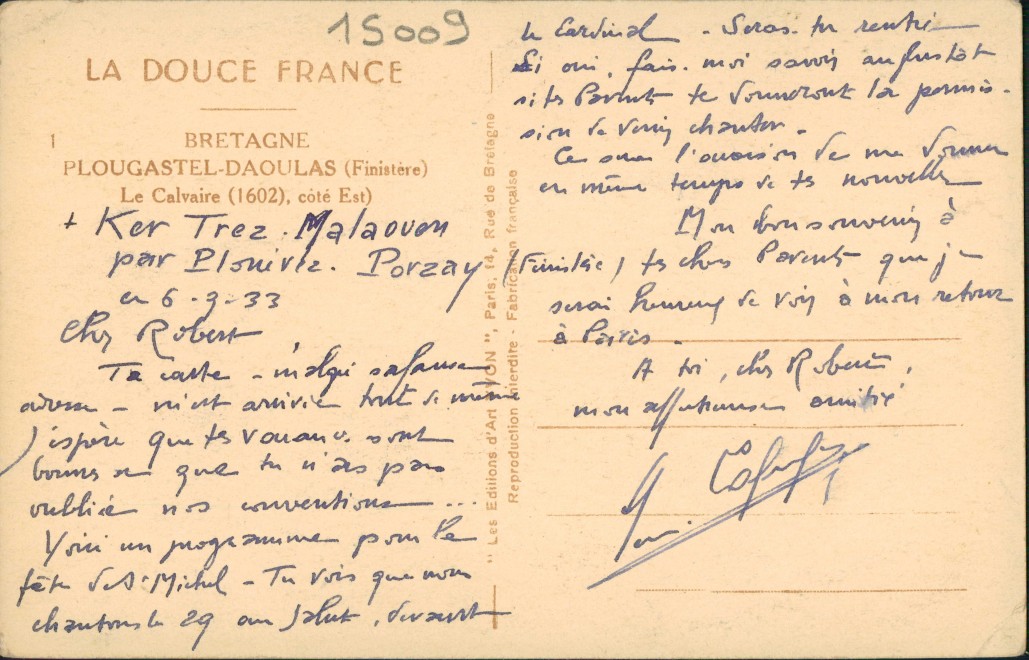 15009
LA DOUCE FRANCE
1
BRETAGNE
PLOUGASTEL-DAOULAS (Finistère)
Le Calvaire (1602), côté Est)
+ Ker Trez. Malaouen
par Plonivez. Porzay (Finistère)
en 6-9-33
Cher Robert
Ta carte - malgré sa fausse
adresse - m'est arrivée tout de même
J'espère que tes vacances sont
bonnes et que tu n'as pas
oublié nos conventions ...
Voici un programme pour la
fête de St Michel - Tu vois que nous
chantons le 29 au Salut, devant
"Les Editions d'Art YVON", Paris, 14, Rue de Bretagne
Reproduction interdite - Fabrication française
le Cardinal - Seras-tu rentré
Si oui, fais-moi savoir aussitôt
si tes Parents te donneront la permis-
sion de venir chanter.
Ce sera l'occasion de me donner
en même temps de tes nouvelles
Mon bon souvenir à
tes chers Parents que je
serai heureux de voir à mon retour
à Paris.
A toi, cher Robert,
mon affectueuse amitié